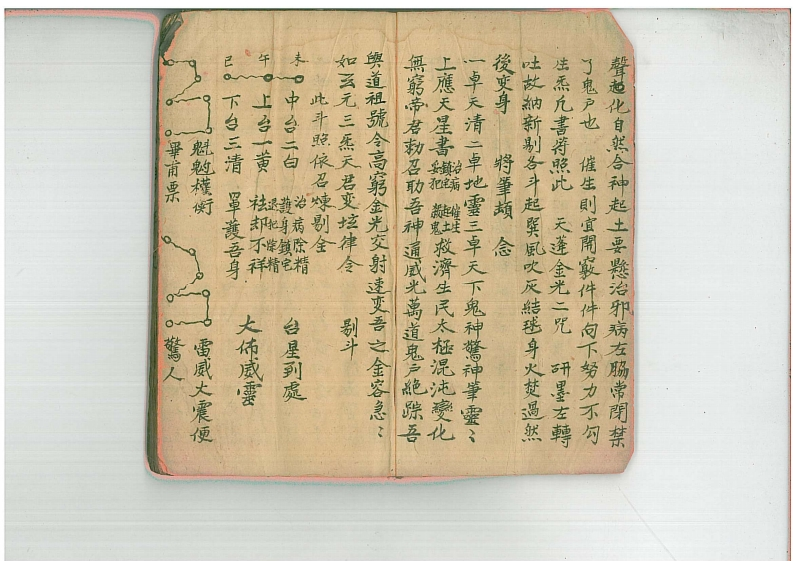 聲起化自然合神起土要懸治邪病左脇常閉禁
了鬼戸也 催生則宜開竅件件向下努力不勾
生炁凡書符照此 天蓬金光二咒 研墨左轉
吐故納新剔各斗起巽風吹灰結毬身火焚過然
後变身 將筆頓 念
一卓天清二卓地靈三卓天下鬼神驚神筆靈〻
上應天星書治病鎮宅妥犯催生起土救濟生民太極混沌變化
無窮帝君勅召助吾神通威光萬道鬼戸絶踪吾
與道祖號令高窮金光交射速变吾之金容急〻
如玄元三炁天君变垓律令
此斗照依召煉剔全 剔斗
未 中台二白 治病除精護身鎮宅 台星到處
午 上台一黄 退犯除精祛却不祥 大佈威靈
巳 下台三清 單護吾身
魁𩲃權衡 雷威大震便
畢甫票 驚人